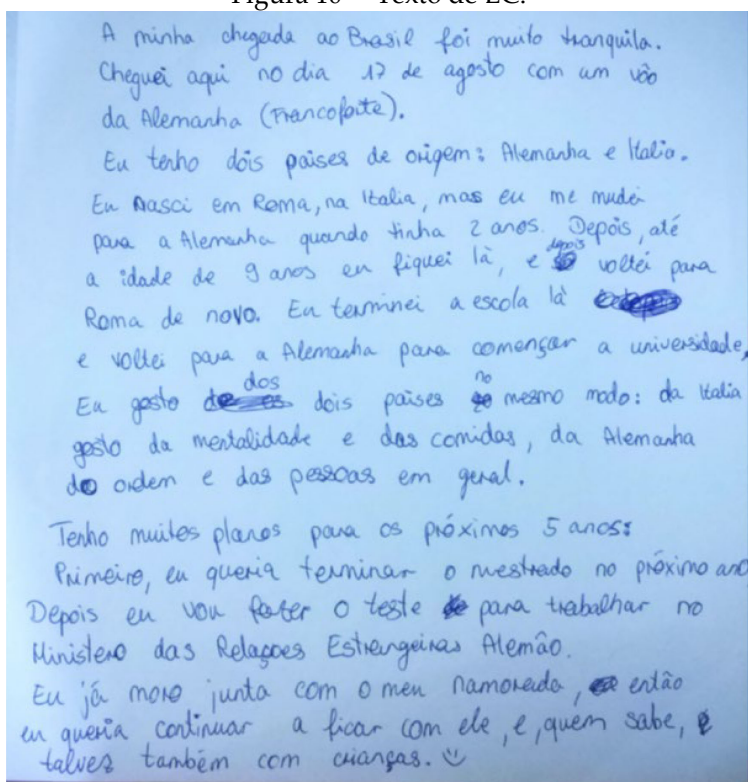 A minha chegada ao Brasil foi muito tranquila.
Cheguei aqui no dia 17 de agosto com um vôo
da Alemanha (Francoforte).
Eu tenho dois paises de origem: Alemanha e Italia.
Eu nasci em Roma, na Italia, mas eu me mudei
para a Alemanha quando tinha 2 anos. Depois, até
a idade de 9 anos eu fiquei là, e depois voltei para
Roma de novo. Eu terminei a escola là
e voltei para a Alemanha para començar a universidade,
Eu gosto dos dois paises no mesmo modo: da Italia
gosto da mentalidade e das comidas, da Alemanha
do orden e das pessoas em geral.
Tenho muitos planos para os próximos 5 anos:
Primeiro, eu queria terminar o mestrado no próximo ano
Depois eu vou fazer o teste para trabalhar no
Ministero das Relaçoes Estrangeiras Alemão.
Eu já moro junta com o meu namorado, então
eu queria continuar a ficar com ele, e, quem sabe,
talvez também com crianças.